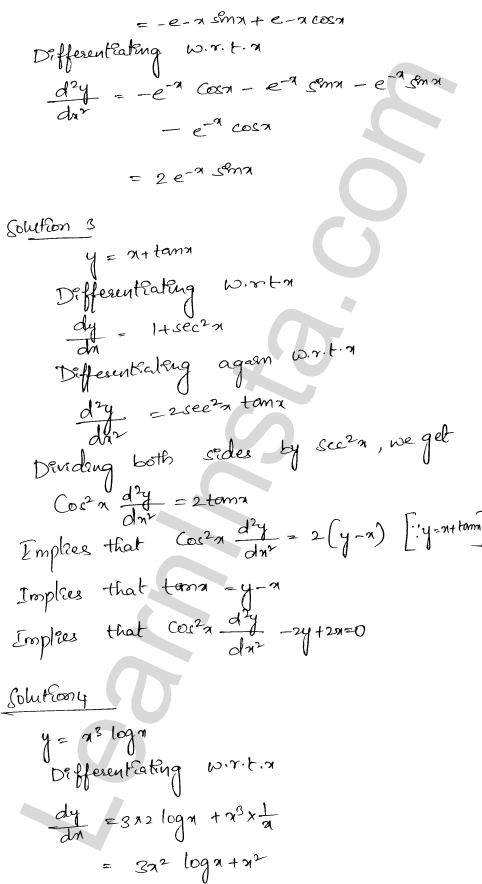 = -e-x sinx + e-x cosx
Differentiating w.r.t.x
d²y/dx² = -e⁻ˣ cosx - e⁻ˣ sinx - e⁻ˣ sinx
- e⁻ˣ cosx
= 2e-x sinx
Solution 3
y = x+tanx
Differentiating w.r.t x
dy/dx = 1+sec²x
Differentiating again w.r.t.x
d²y/dx² = 2sec²x tanx
Dividing both sides by sec²x, we get
Cos²x d²y/dx² = 2tanx
Implies that Cos²x d²y/dx² = 2(y-x) [∵y=x+tanx]
Implies that tanx = y-x
Implies that cos²x d²y/dx² -2y+2x=0
Solution 4
y = x³ logx
Differentiating w.r.t.x
dy/dx = 3x2 logx + x³ × 1/x
= 3x² logx + x²
LearnInsta.com